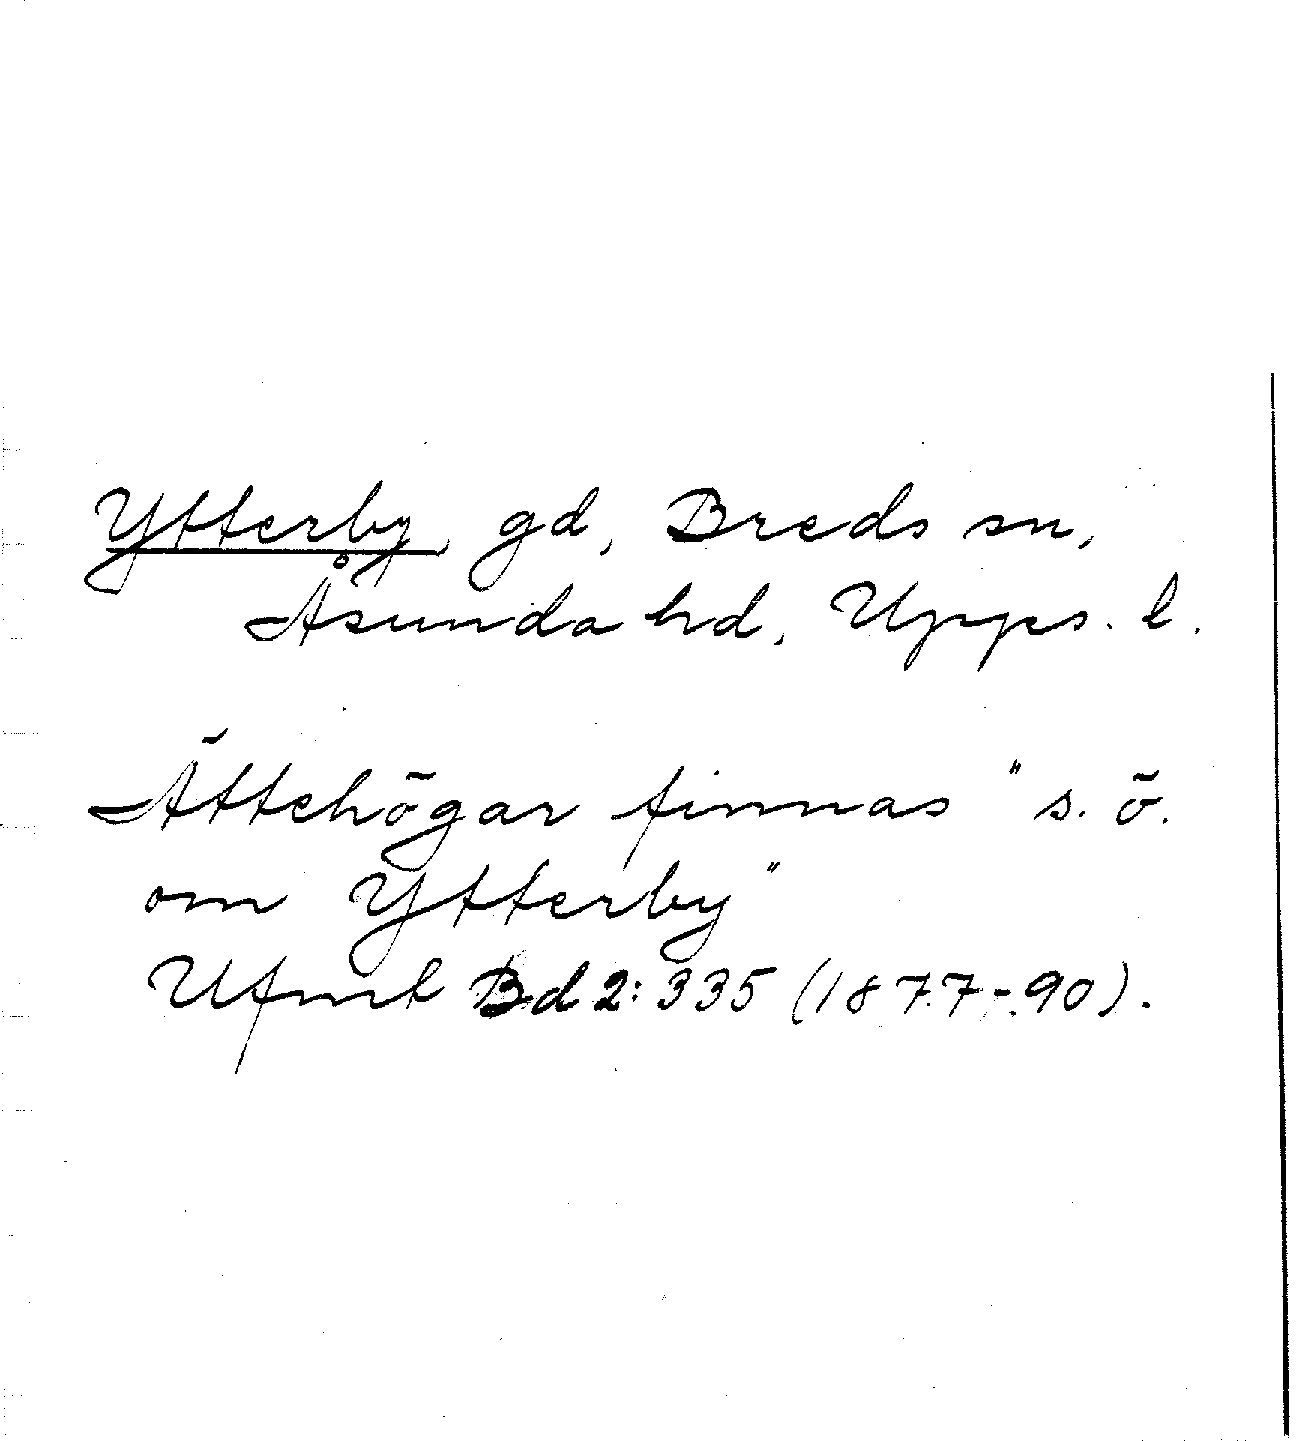 Ytterby, gd, Breds sn,
Åsunda hd, Upps. l.
Ättehögar finnas "s.ö.
om Ytterby"
Ufmt Bd 2:335 (1877-90).